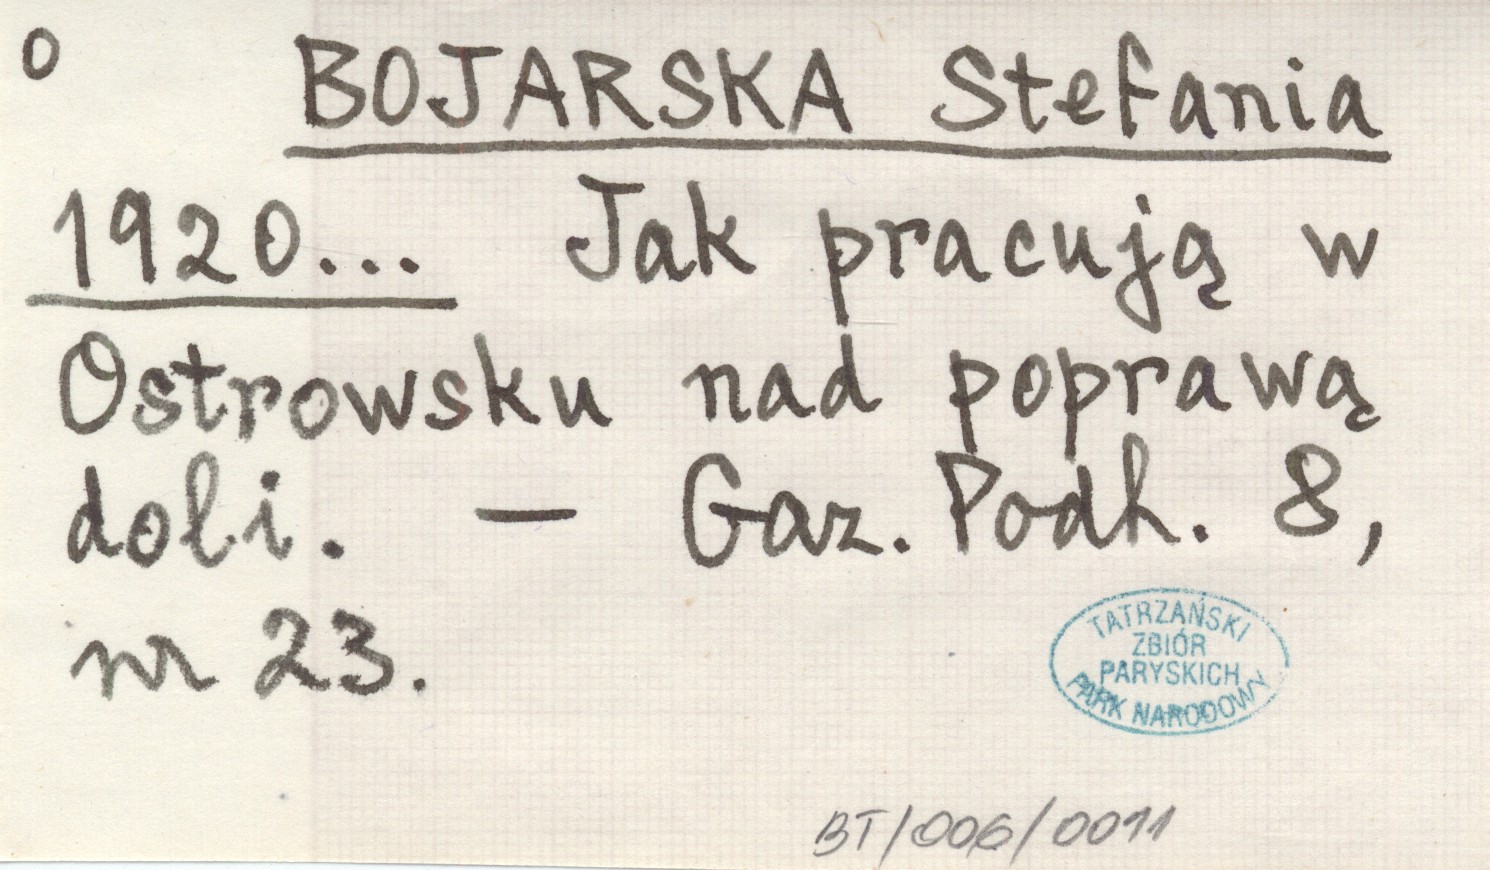 o BOJARSKA Stefania
1920... Jak pracują w
Ostrowsku nad poprawą
doli. — Gaz. Podh. 8,
nr 23.
TATRZAŃSKI
ZBIÓR
PARYSKICH
PARK NARODOWY
BT/006/0011